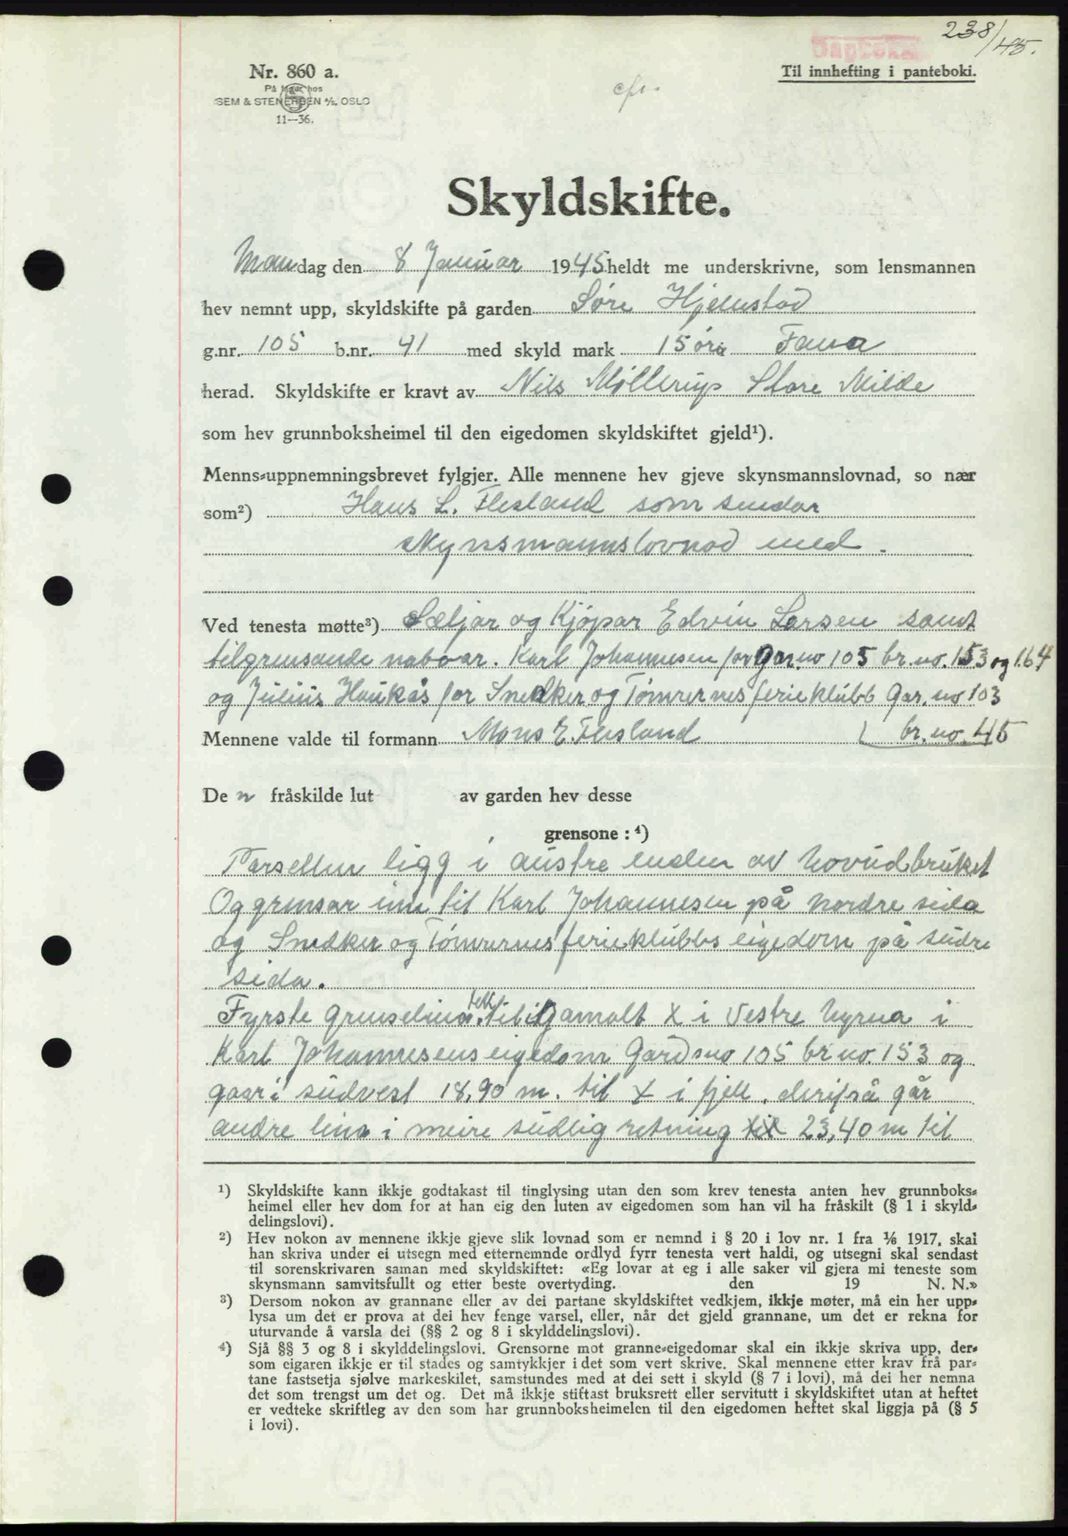 238/45.
Dagbok
Nr. 860 a.
Til innhefting i panteboki.
På lager hos
SEM & STENERSEN A/S, OSLO
11—36.
Skyldskifte.
Mandag den 8 Januar 1945 heldt me underskrivne, som lensmannen
hev nemnt upp, skyldskifte på garden Søre Hjellestad
g.nr. 105 b.nr. 41 med skyld mark 15 øre Fana
herad. Skyldskifte er kravt av Nils Møllerup Store Milde
som hev grunnboksheimel til den eigedomen skyldskiftet gjeld¹).
Menns-uppnemningsbrevet fylgjer. Alle mennene hev gjeve skynsmannslovnad, so nær
som²) Hans L. Flesland som sendar
skynsmannslovnad med.
Ved tenesta møtte³) Sæljar og Kjøpar Edvin Larsen samt
tilgrensande naboar. Karl Johannesen for Gar. no 105 br. no. 153 og 164
og Julius Haukås for Snedker og Tømrernes ferieklubb Gar. no 103
Mennene valde til formann Mons E. Flesland br. no. 45
De n fråskilde lut av garden hev desse
grensone: ⁴)
Parsellen ligg i austre enden av hovudbruket
Og grensar inn til Karl Johannesen på nordre sida
og Snedker og Tømrernes ferieklubbs eigedom på südre
sida.
Fyrste grenselina tek til i gamalt X i vestre hyrna i
Karl Johannesens eigedom Gardsno 105 br no. 153 og
gaar i südvest 18,90 m. til X i fjell, derifrå går
andre lina i meire südlig retning til 23,40 m til
¹) Skyldskifte kann ikkje godtakast til tinglysing utan den som krev tenesta anten hev grunnboks-
heimel eller hev dom for at han eig den luten av eigedomen som han vil ha fråskilt (§ 1 i skyld-
delingslovi).
²) Hev nokon av mennene ikkje gjeve slik lovnad som er nemnd i § 20 i lov nr. 1 fra 1/6 1917, skal
han skriva under ei utsegn med etternemnde ordlyd fyrr tenesta vert haldi, og utsegni skal sendast
til sorenskrivaren saman med skyldskiftet: «Eg lovar at eg i alle saker vil gjera mi teneste som
skynsmann samvitsfullt og etter beste overtyding. den 19 N. N.»
³) Dersom nokon av grannane eller av dei partane skyldskiftet vedkjem, ikkje møter, må ein her upp-
lysa um det er prova at dei hev fenge varsel, eller, når det gjeld grannane, um det er rekna for
uturvande å varsla dei (§§ 2 og 8 i skylddelingslovi).
⁴) Sjå §§ 3 og 8 i skylddelingslovi. Grensorne mot granne-eigedomar skal ein ikkje skriva upp, der-
som eigaren ikkje er til stades og samtykkjer i det som vert skrive. Skal mennene etter krav frå par-
tane fastsetja sjølve markeskilet, samstundes med at dei sett i skyld (§ 7 i lovi), må dei her nemna
det som trengst um det og. Det må ikkje stiftast bruksrett eller servitutt i skyldskiftet utan at heftet
er vedteke skriftleg av den som har grunnboksheimelen til den eigedomen heftet skal liggja på (§ 5
i lovi).